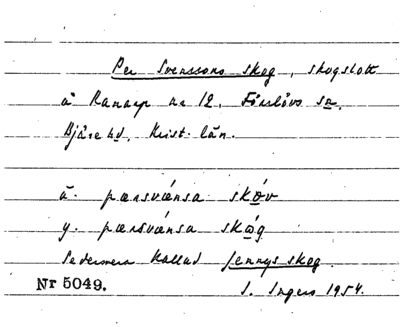 Per Svenssons skog, skogslott
å Ranarp nr 12, Förslövs sn,
Bjäre hd, Krist. län.
ä. pærsvǽnsa skóv
y. pærsvǽnsa skǻg
Sedermera kallad Jennys skog.
Nr 5049. S. Ingers 1954.